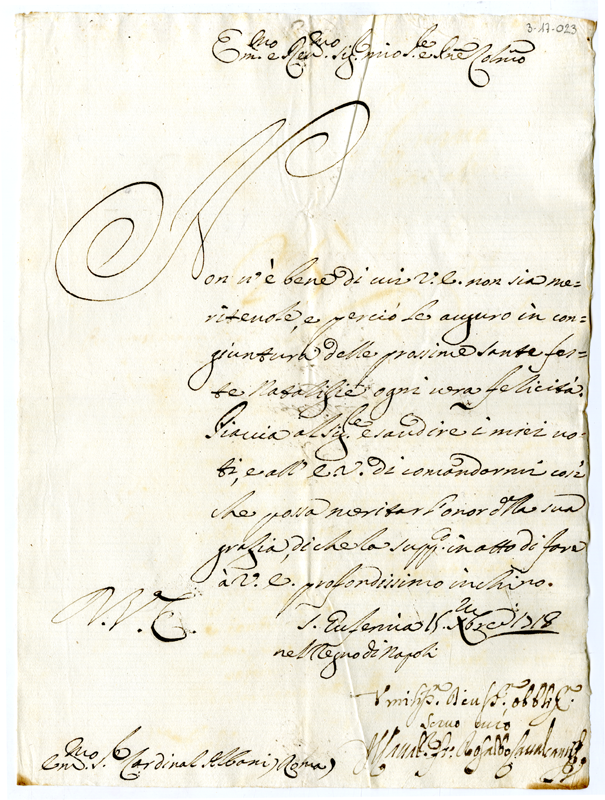 3-17-023
Em.mo e Rev.mo Sig. mio S.e e P.ne Col.mo
Non v'è bene di cui V.E. non sia me=
ritevole, e perciò le auguro in con=
giuntura delle prossime sante fes=
te Natalizie ogni vera felicità.
Piaccia al Sig.re esaudire i miei vo=
ti, e all' E.V. di comandarmi così
che possa meritar l'onor della sua
grazia, di che la supp.co in atto di fare
à V.E. profondissimo inchino.
S. Eufemia 15 Xbre 1718
nel Regno di Napoli
V.E.
Umiliss.o Devotiss.o Obblig.
Servo vero
Em.mo S.r Cardinal Albani (Roma)